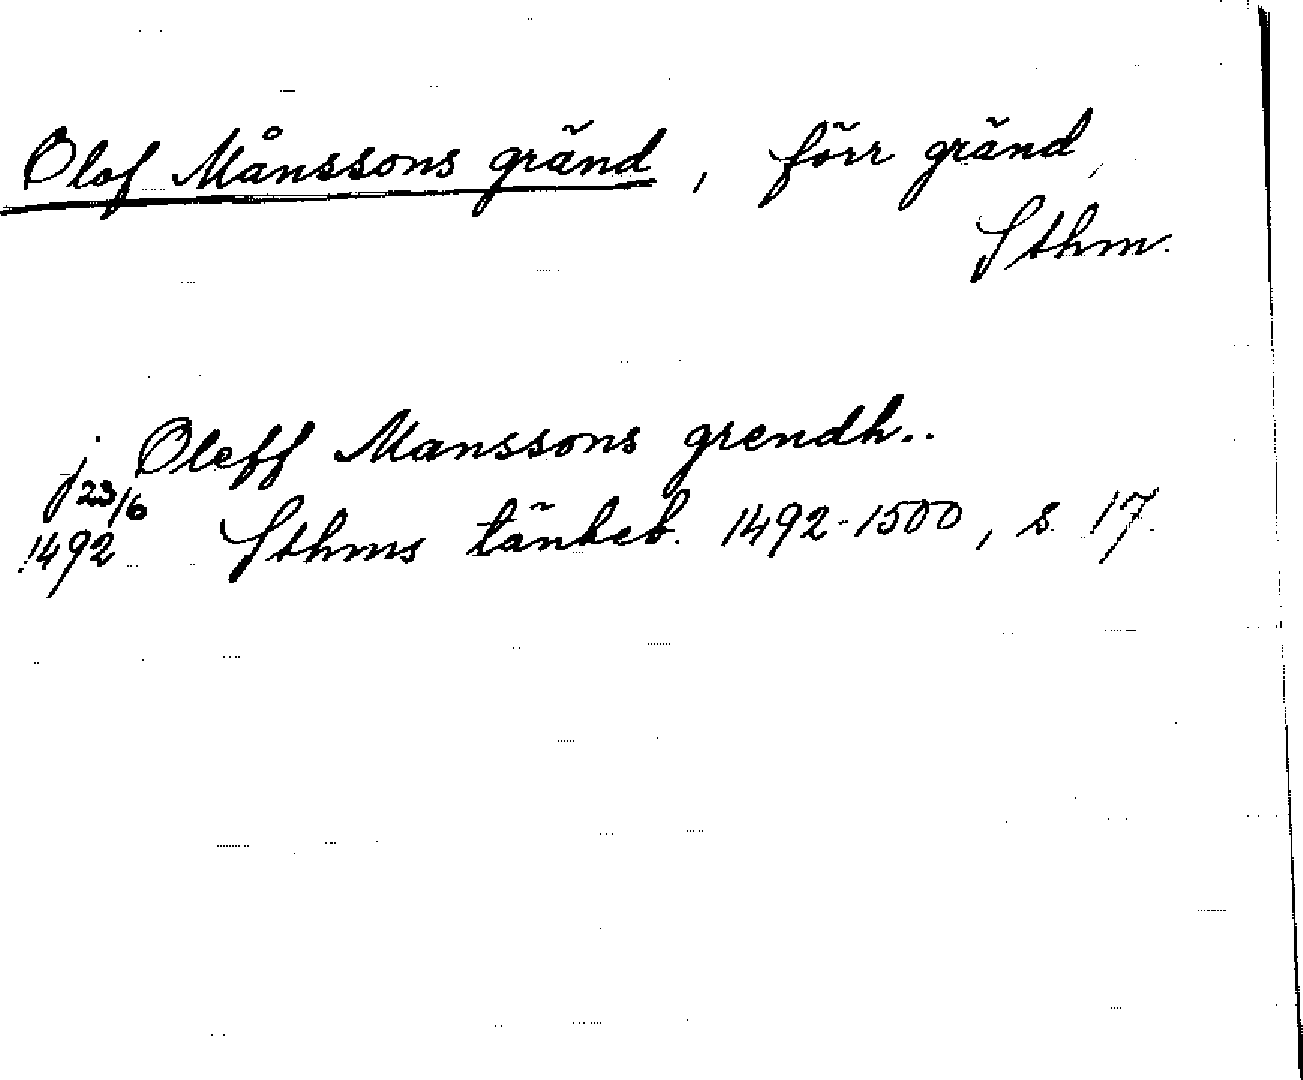 Olof Månssons gränd, förr gränd,
Sthm.
j Oleff Manssons grendh..
23/6
1492 Sthms tänkeb. 1492-1500, s. 17.